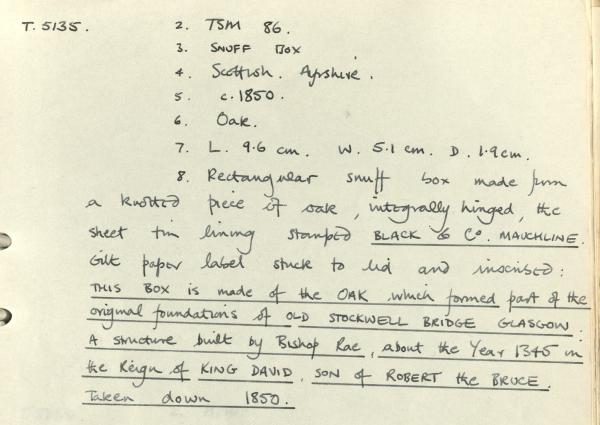 T. 5135. 2. TSM 86.
3. SNUFF BOX
4. Scottish. Ayrshire.
5. c. 1850.
6. Oak.
7. L. 9.6 cm. W. 5.1 cm. D. 1.9 cm.
8. Rectangular snuff box made from
a knotted piece of oak, integrally hinged, the
sheet tin lining stamped BLACK & Co. MAUCHLINE.
Gilt paper label stuck to lid and inscribed:
THIS BOX is made of the OAK which formed part of the
original foundations of OLD STOCKWELL BRIDGE GLASGOW:
A structure built by Bishop Rae, about the Year 1345 in
the Reign of KING DAVID, SON of ROBERT the BRUCE.
Taken down 1850.